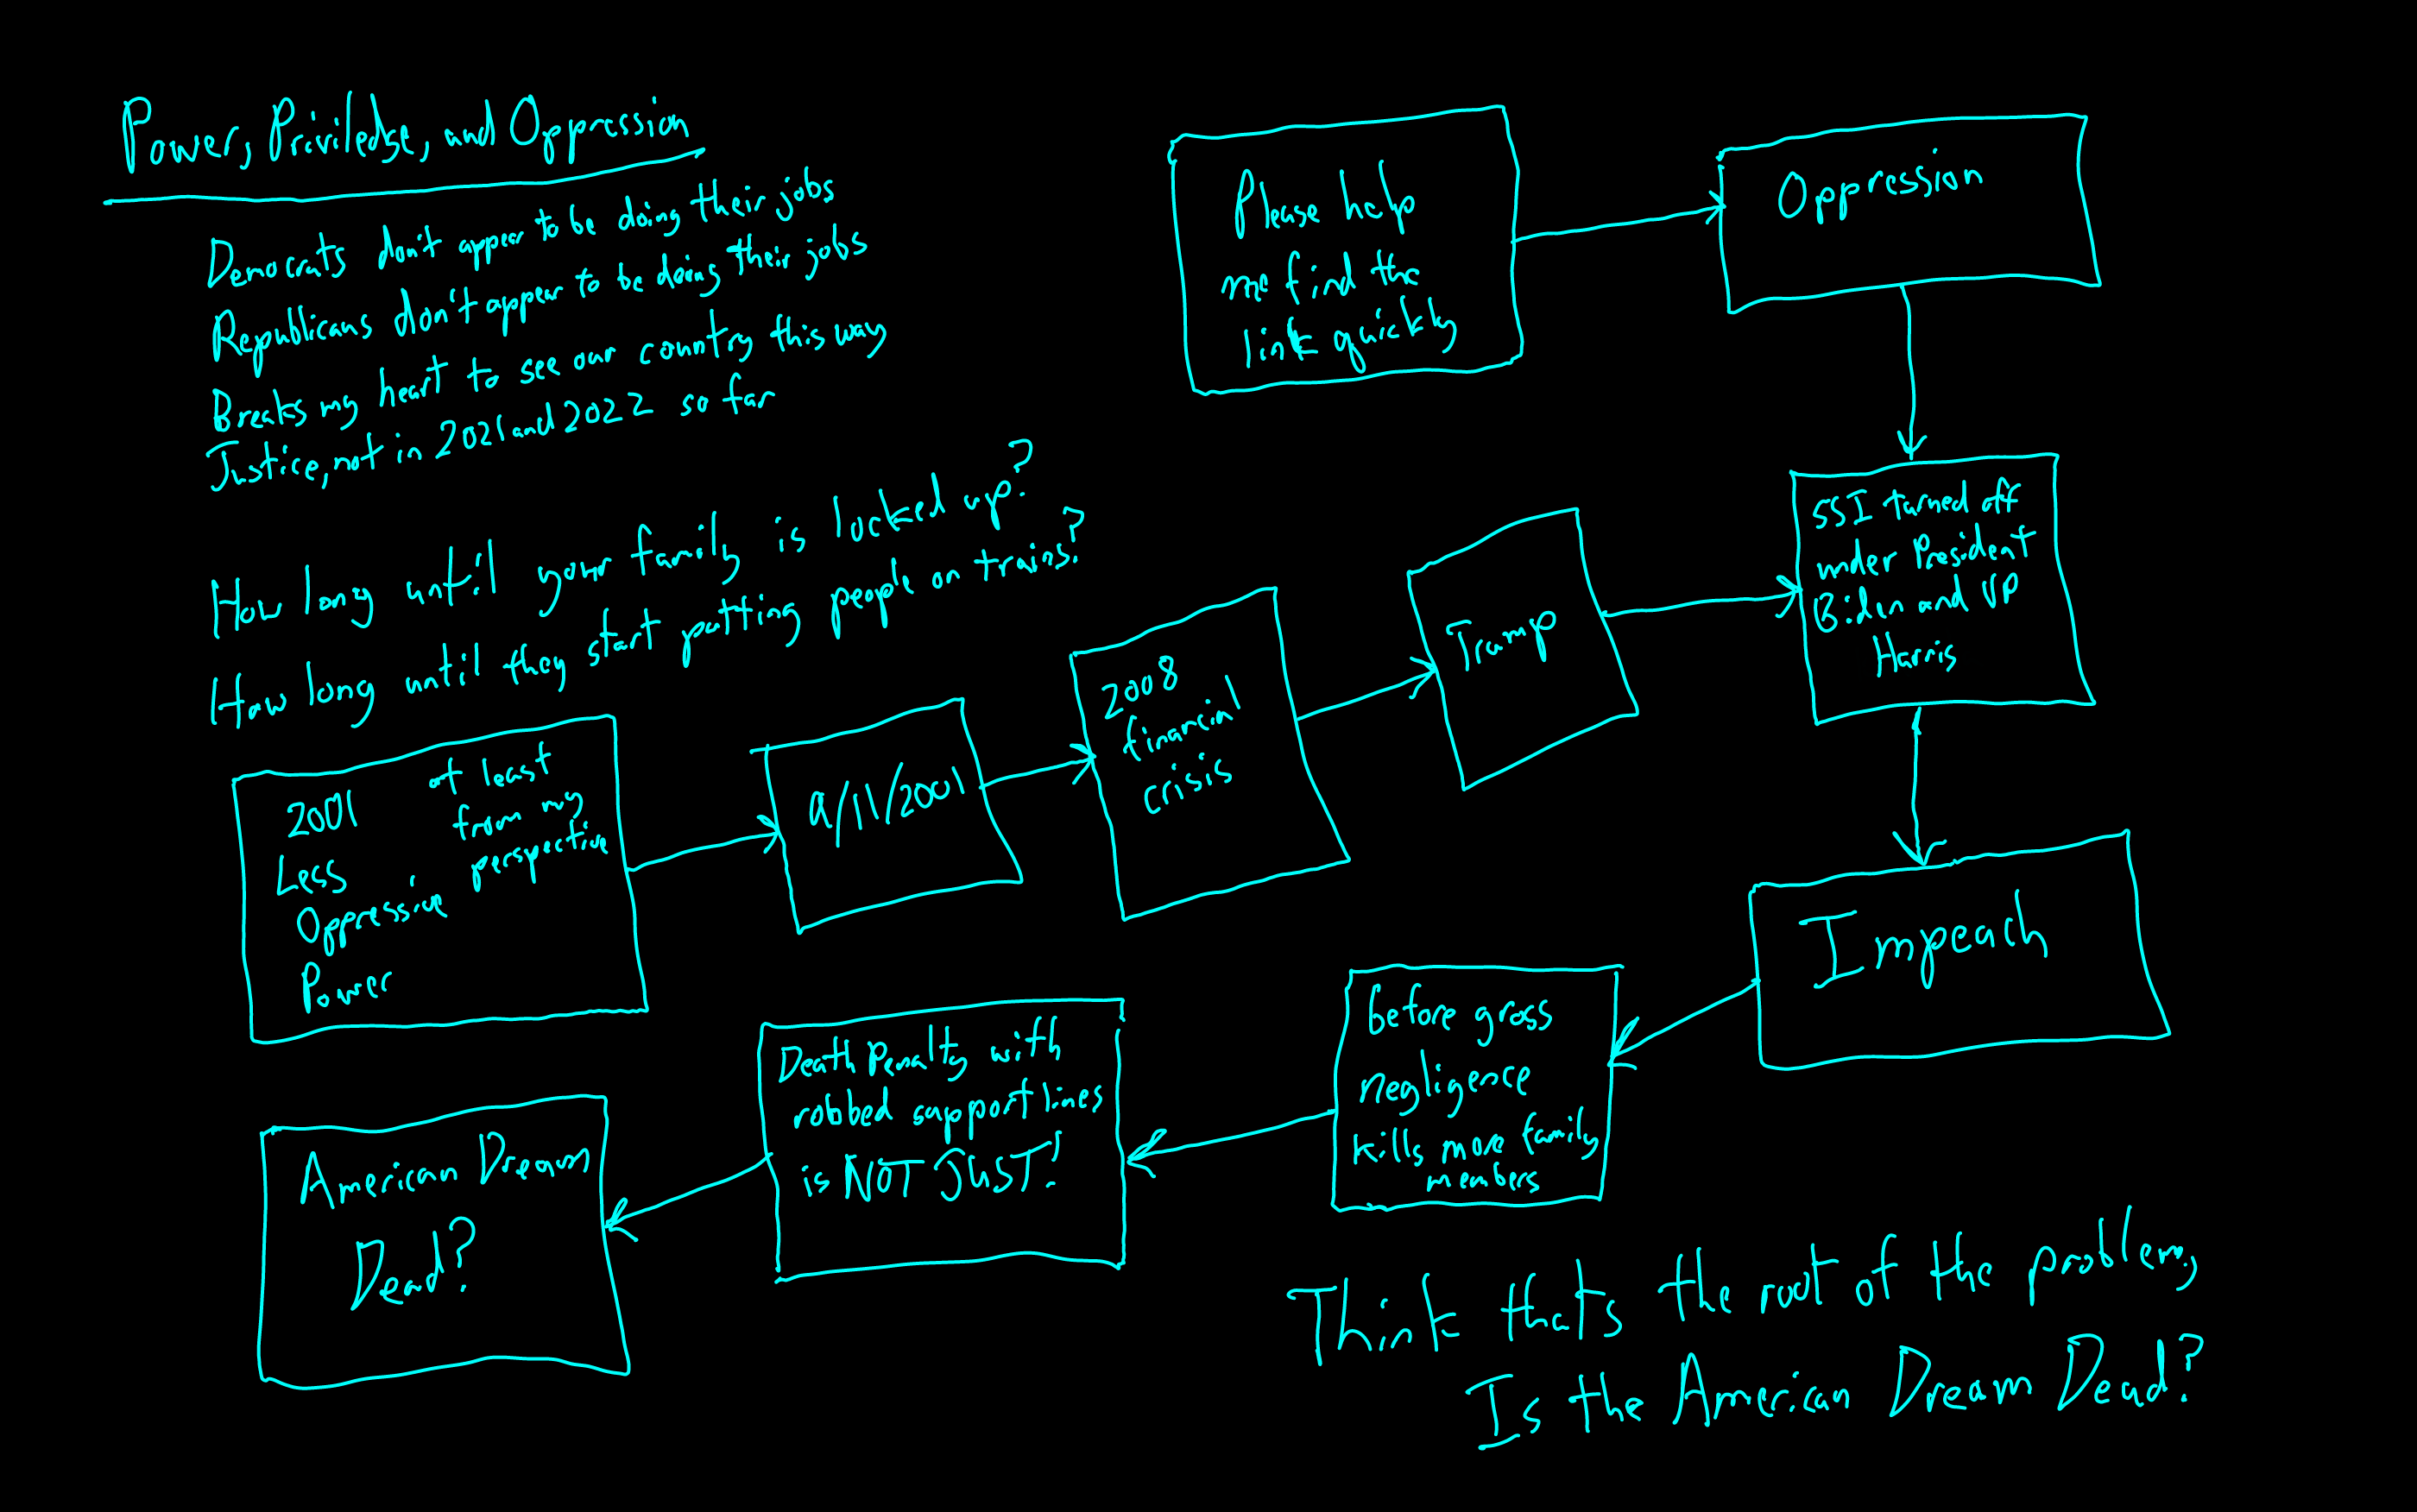 Power, Priviledge, and Oppression
Democrats don't appear to be doing their jobs
Republicans don't appear to be doing their jobs
Breaks my heart to see our country this way
Justice, not in 2021 and 2022 so far
How long until your family is locked up?
How long until they start putting people on trains?
Please help
me find the
link quickly
Oppression
SSI turned off
under President
Biden and VP
Harris
Trump
2008
financial
crisis
9/11/2001
2001
Less
Oppressive
Power
at least
from my
perspective
Impeach
before gross
negligence
kills more family
members
Death Penalty with
robbed support lines
is NOT JUST!
American Dream
Dead?
Think thats the root of the problem,
Is the American Dream Dead?